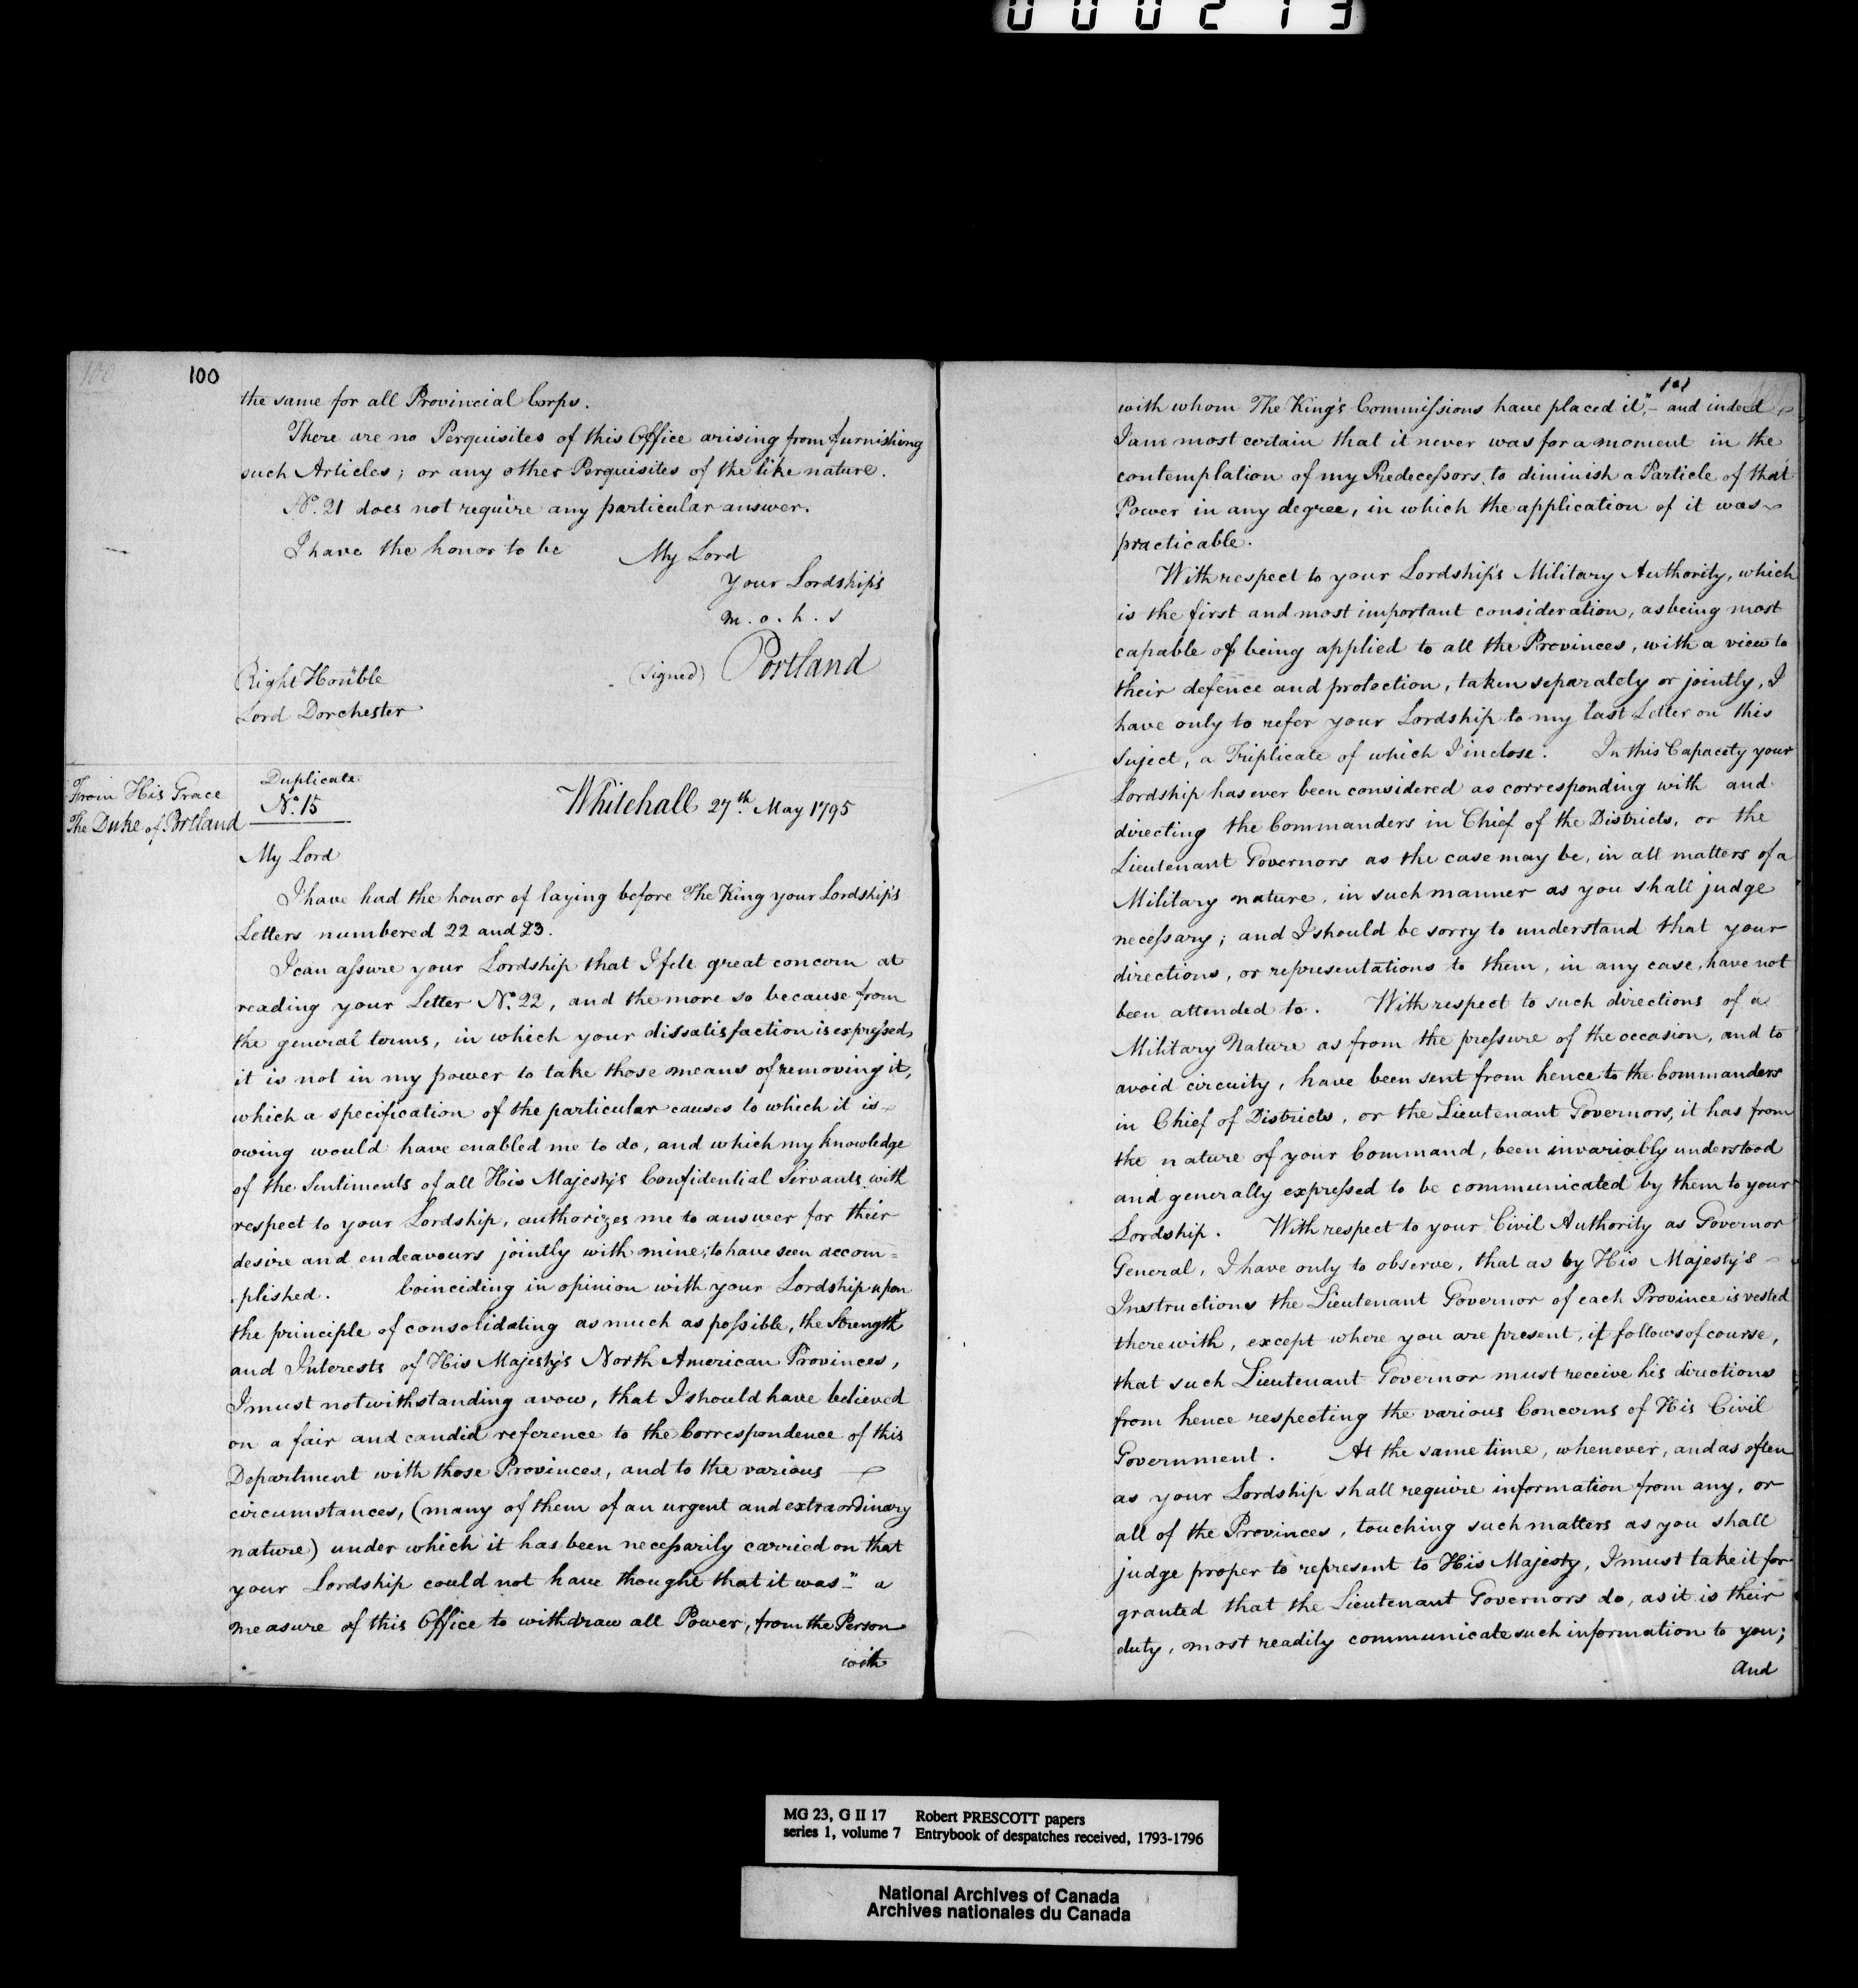 000213
100
100
the same for all Provincial Corps.
There are no Perquisites of this Office arising from furnishing
such Articles; or any other Perquisites of the like nature.
No. 21 does not require any particular answer.
I have the honor to be
My Lord
Your Lordship's
m. o. h. s
(signed) Portland
Right Honble
Lord Dorchester
From His Grace
The Duke of Portland
Duplicate
No. 15
Whitehall 27th. May 1795
My Lord
I have had the honor of laying before The King your Lordship's
Letters numbered 22 and 23.
I can aſsure your Lordship that I felt great concern at
reading your Letter No. 22, and the more so because from
the general terms, in which your dissatisfaction is expreſsed,
it is not in my power to take those means of removing it,
which a specification of the particular causes to which it is
owing would have enabled me to do, and which my knowledge
of the Sentiments of all His Majesty's Confidential Servants with
respect to your Lordship, authorizes me to answer for their
desire and endeavours jointly with mine, to have seen accom=
plished. Coinciding in opinion with your Lordship upon
the principle of consolidating as much as poſsible, the Strength
and Interests of His Majesty's North American Provinces,
I must notwithstanding avow, that I should have believed
on a fair and candid reference to the Correspondence of this
Department with those Provinces, and to the various
circumstances, (many of them of an urgent and extraordinary
nature) under which it has been neceſsarily carried on that
your Lordship could not have thought that it was " a
measure of this Office to withdraw all Power, from the Person
with
101
with whom The King's Commiſsions have placed it", - and indeed
I am most certain that it never was for a moment in the
contemplation of my Predeceſsors, to diminish a Particle of that
Power in any degree, in which the application of it was
practicable.
With respect to your Lordship's Military Authority, which
is the first and most important consideration, as being most
capable of being applied to all the Provinces, with a view to
their defence and protection, taken separately or jointly, I
have only to refer your Lordship to my last Letter on this
Suject, a Triplicate of which I inclose. In this Capacity your
Lordship has ever been considered as corresponding with and
directing the Commanders in Chief of the Districts, or the
Lieutenant Governors as the case may be, in all matters of a
Military nature, in such manner as you shall judge
neceſsary; and I should be sorry to understand that your
directions, or representations to them, in any case, have not
been attended to. With respect to such directions of a
Military Nature as from the preſsure of the occasion, and to
avoid circuity, have been sent from hence to the Commanders
in Chief of Districts, or the Lieutenant Governors, it has from
the nature of your Command, been invariably understood
and generally expreſsed to be communicated by them to your
Lordship. With respect to your Civil Authority as Governor
General, I have only to observe, that as by His Majesty's
Instructions the Lieutenant Governor of each Province is vested
therewith, except where you are present, it follows of course,
that such Lieutenant Governor must receive his directions
from hence respecting the various Concerns of His Civil
Government. At the same time, whenever, and as often
as your Lordship shall require information from any, or
all of the Provinces, touching such matters as you shall
judge proper to represent to His Majesty, I must take it for
granted that the Lieutenant Governors do, as it is their
duty, most readily communicate such information to you;
and
MG 23, G II 17 Robert PRESCOTT papers
series 1, volume 7 Entrybook of despatches received, 1793-1796
National Archives of Canada
Archives nationales du Canada